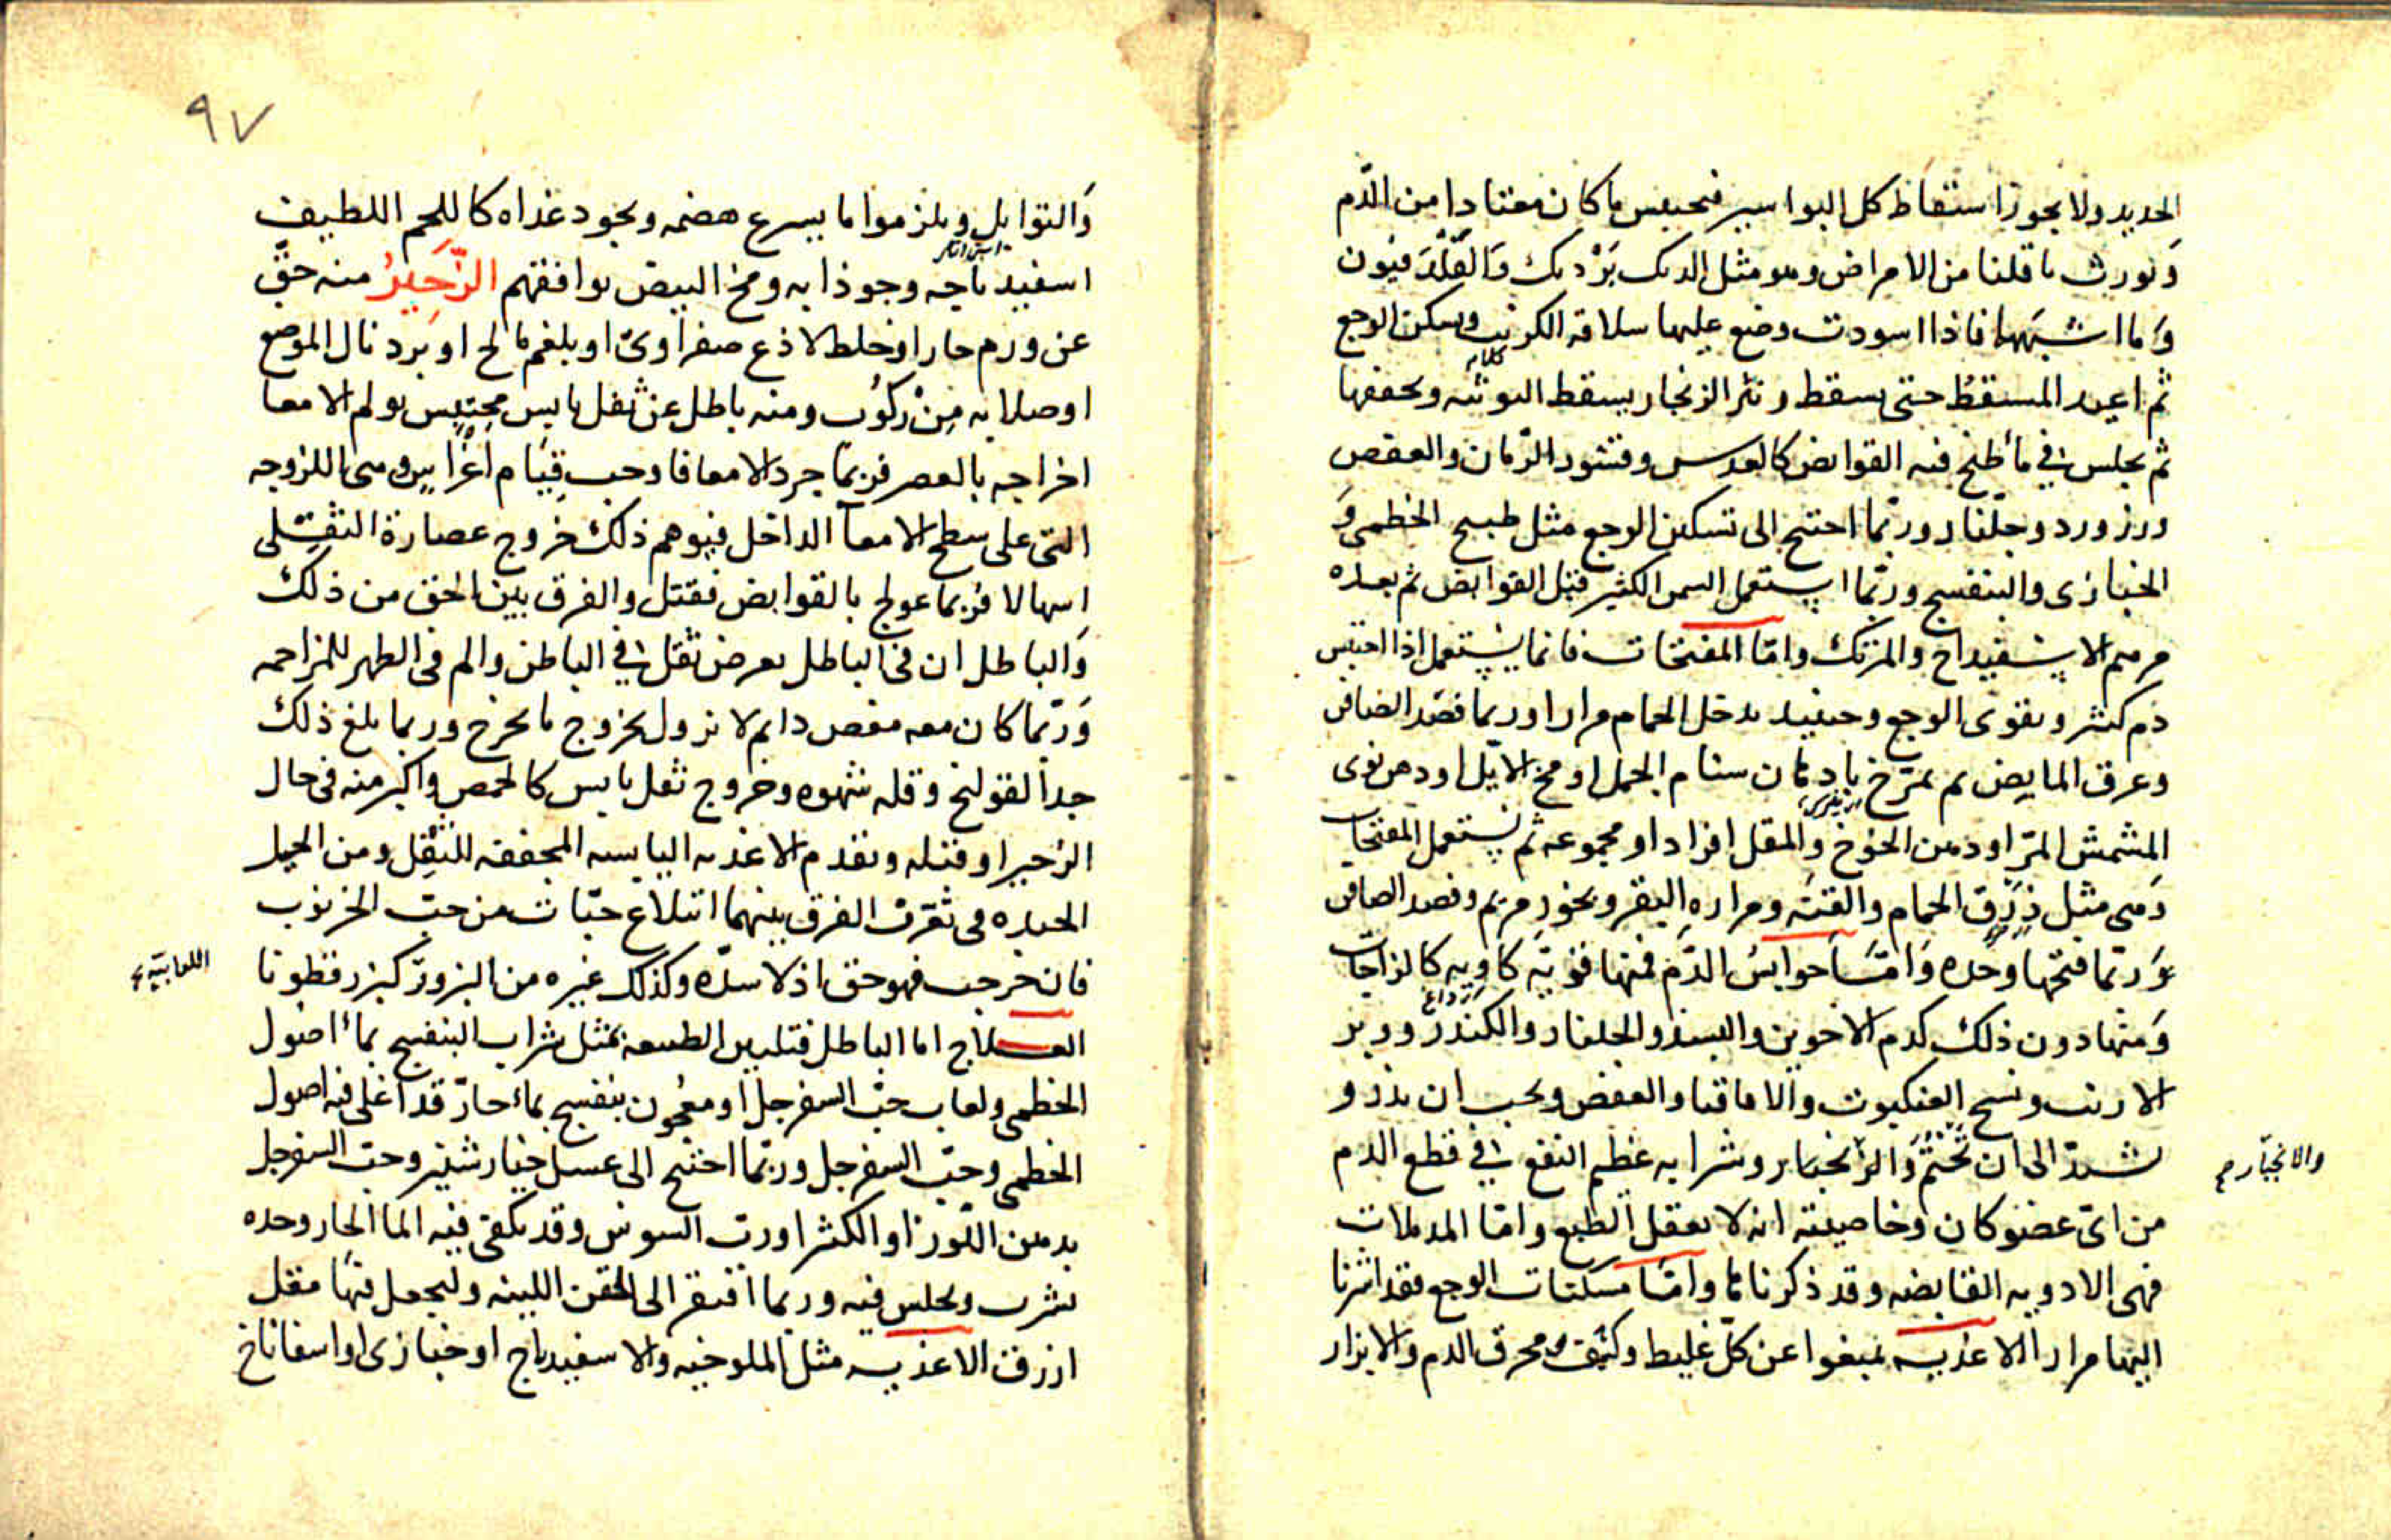 الحديد ولا يجوز اسقاط كل البواسير فيحتبس ما كان معتادا من الدّم
وَيورث ما قلنا من الامراض وهو مثل الديك بَرْديك وَالقَلْدَفيون
وَما اشبَهها فاذا اسودت وضع عليها سلاقه الكرنب ويسكن الوجع
ثم اعيد المسقطُ حتى يسقط ونثر الزنجار يسقط التوتَه ويجففها
ثم يجلس في ماء طبخ فيه القوابض كالعدس وقشور الرّمان والعفص
وبزر ورد وجلّنار وربّما احتيج الى تسكين الوجع مثل طبيخ الخطمى وَ
الخبازى والبنفسج وربّما استعمل السمن الكثير قبل القوابض ثم بعده
مرهم الاسفيداج والمرتك وامّا المفتحات فانما يستعمل اذا احتبس
دم كثير ويقوى الوجع وحينيد يدخل الحمام مرارا وربما فصد الصافن
وعرق المابض ثم يمرّخ بادهان سنام الجمل او مخ الايّل او دهن نوى
المشمش المرّ او دهن الخوخ والمقل افرادا او مجموعه ثم يستعمل المفتحات
وَهى مثل ذرق الحمام والقنّه ومراره البقر وبخور مريم وفصد الصافن
وَربّما فتحها وحده وَامّا حوابسُ الدّم فمنها قويّه كاويه كالزاجات
وَمنها دون ذلك كدم الاخوين والبسد والجلنار والكندر ووبر
الارنب ونسج العنكبوت والاقاقيا والعفص ويجب ان يذر و
تشدّ الى ان تختم وَالرنجبار وشرابه عظيم النفع في قطع الدم
والانجبار م
من اىّ عضو كان وخاصيته انه لا يعقل الطبع وامّا المدملات
فهى الادويه القابضه وقد ذكرناها وامّا مسكنات الوجع فقد اشرنا
اليها مرارا الاغذيه يمنعوا عن كلّ غليظ وكثيف ومحرق الدم والابزار
٩٧
وَالتوابل ويلزموا ما يسرع هضمه ويجود غذاه كاللحم اللطيف
اسفيدباجه وجوذابه ومخ البيض يوافقهم الزّحَيرُ منه حقّ
عن ورم حار او خلط لاذع صفراوىّ او بلغم مالح او برد نال الموضع
او صلابه مِنْ ركوُب ومنه باطل عن ثفل يابس محتبس يولم الامعا
اخراجه بالعصر فربّما جرد الامعا فاوجب قِيَام اغراس وهى اللزوجه
التى على سطح الامعآ الداخل فيوهم ذلك خروج عصارة الثفلى
اسهالا فربما عولج بالقوابض فقتل والفرق بين الحق من ذلك
وَالباطل ان فى الباطل يعرض ثقل في الباطن والم فى الظهر للمزاحمه
وَربّما كان معه مغص دايم لا يزول بخروج ما يخرج وربما بلغ ذلك
جدا لقولنج وقله شهوه وخروج ثفل يابس كالحمص واكبر منه فى حال
الزحير او قبله وتقدم الاغذيه اليابسه المجففه للثفل ومن الحيل
الجيده فى تعرّف الفرق بينهما ابتلاع حبّات من حبّ الخرنوب
فان خرجت فهو حق اذ لا سدّه وكذلك غيره من البزور كبزر قطونا
اللعابيّه
العلاج اما الباطل فتليين الطبيعه بمثل شراب البنفسج بماء اصول
الخطمى ولعاب حبّ السفرجل او معجون بنفسج بماء حارّ قد اغلى فيه اصول
الخطمى وحبّ السفرجل وربّما احتيج الى عسل خيارشنبر وحبّ السفرجل
بدهن اللوز او الكثيرا ورب السوس وقد يكفى فيه الما الحار وحده
يشرب ويجلس فيه وربما افتقر الى الحقن اللينه وليجعل فيها مقل
ازرق الاغذيه مثل الملوخيه والاسفيدباج او خبازى او اسفاناخ